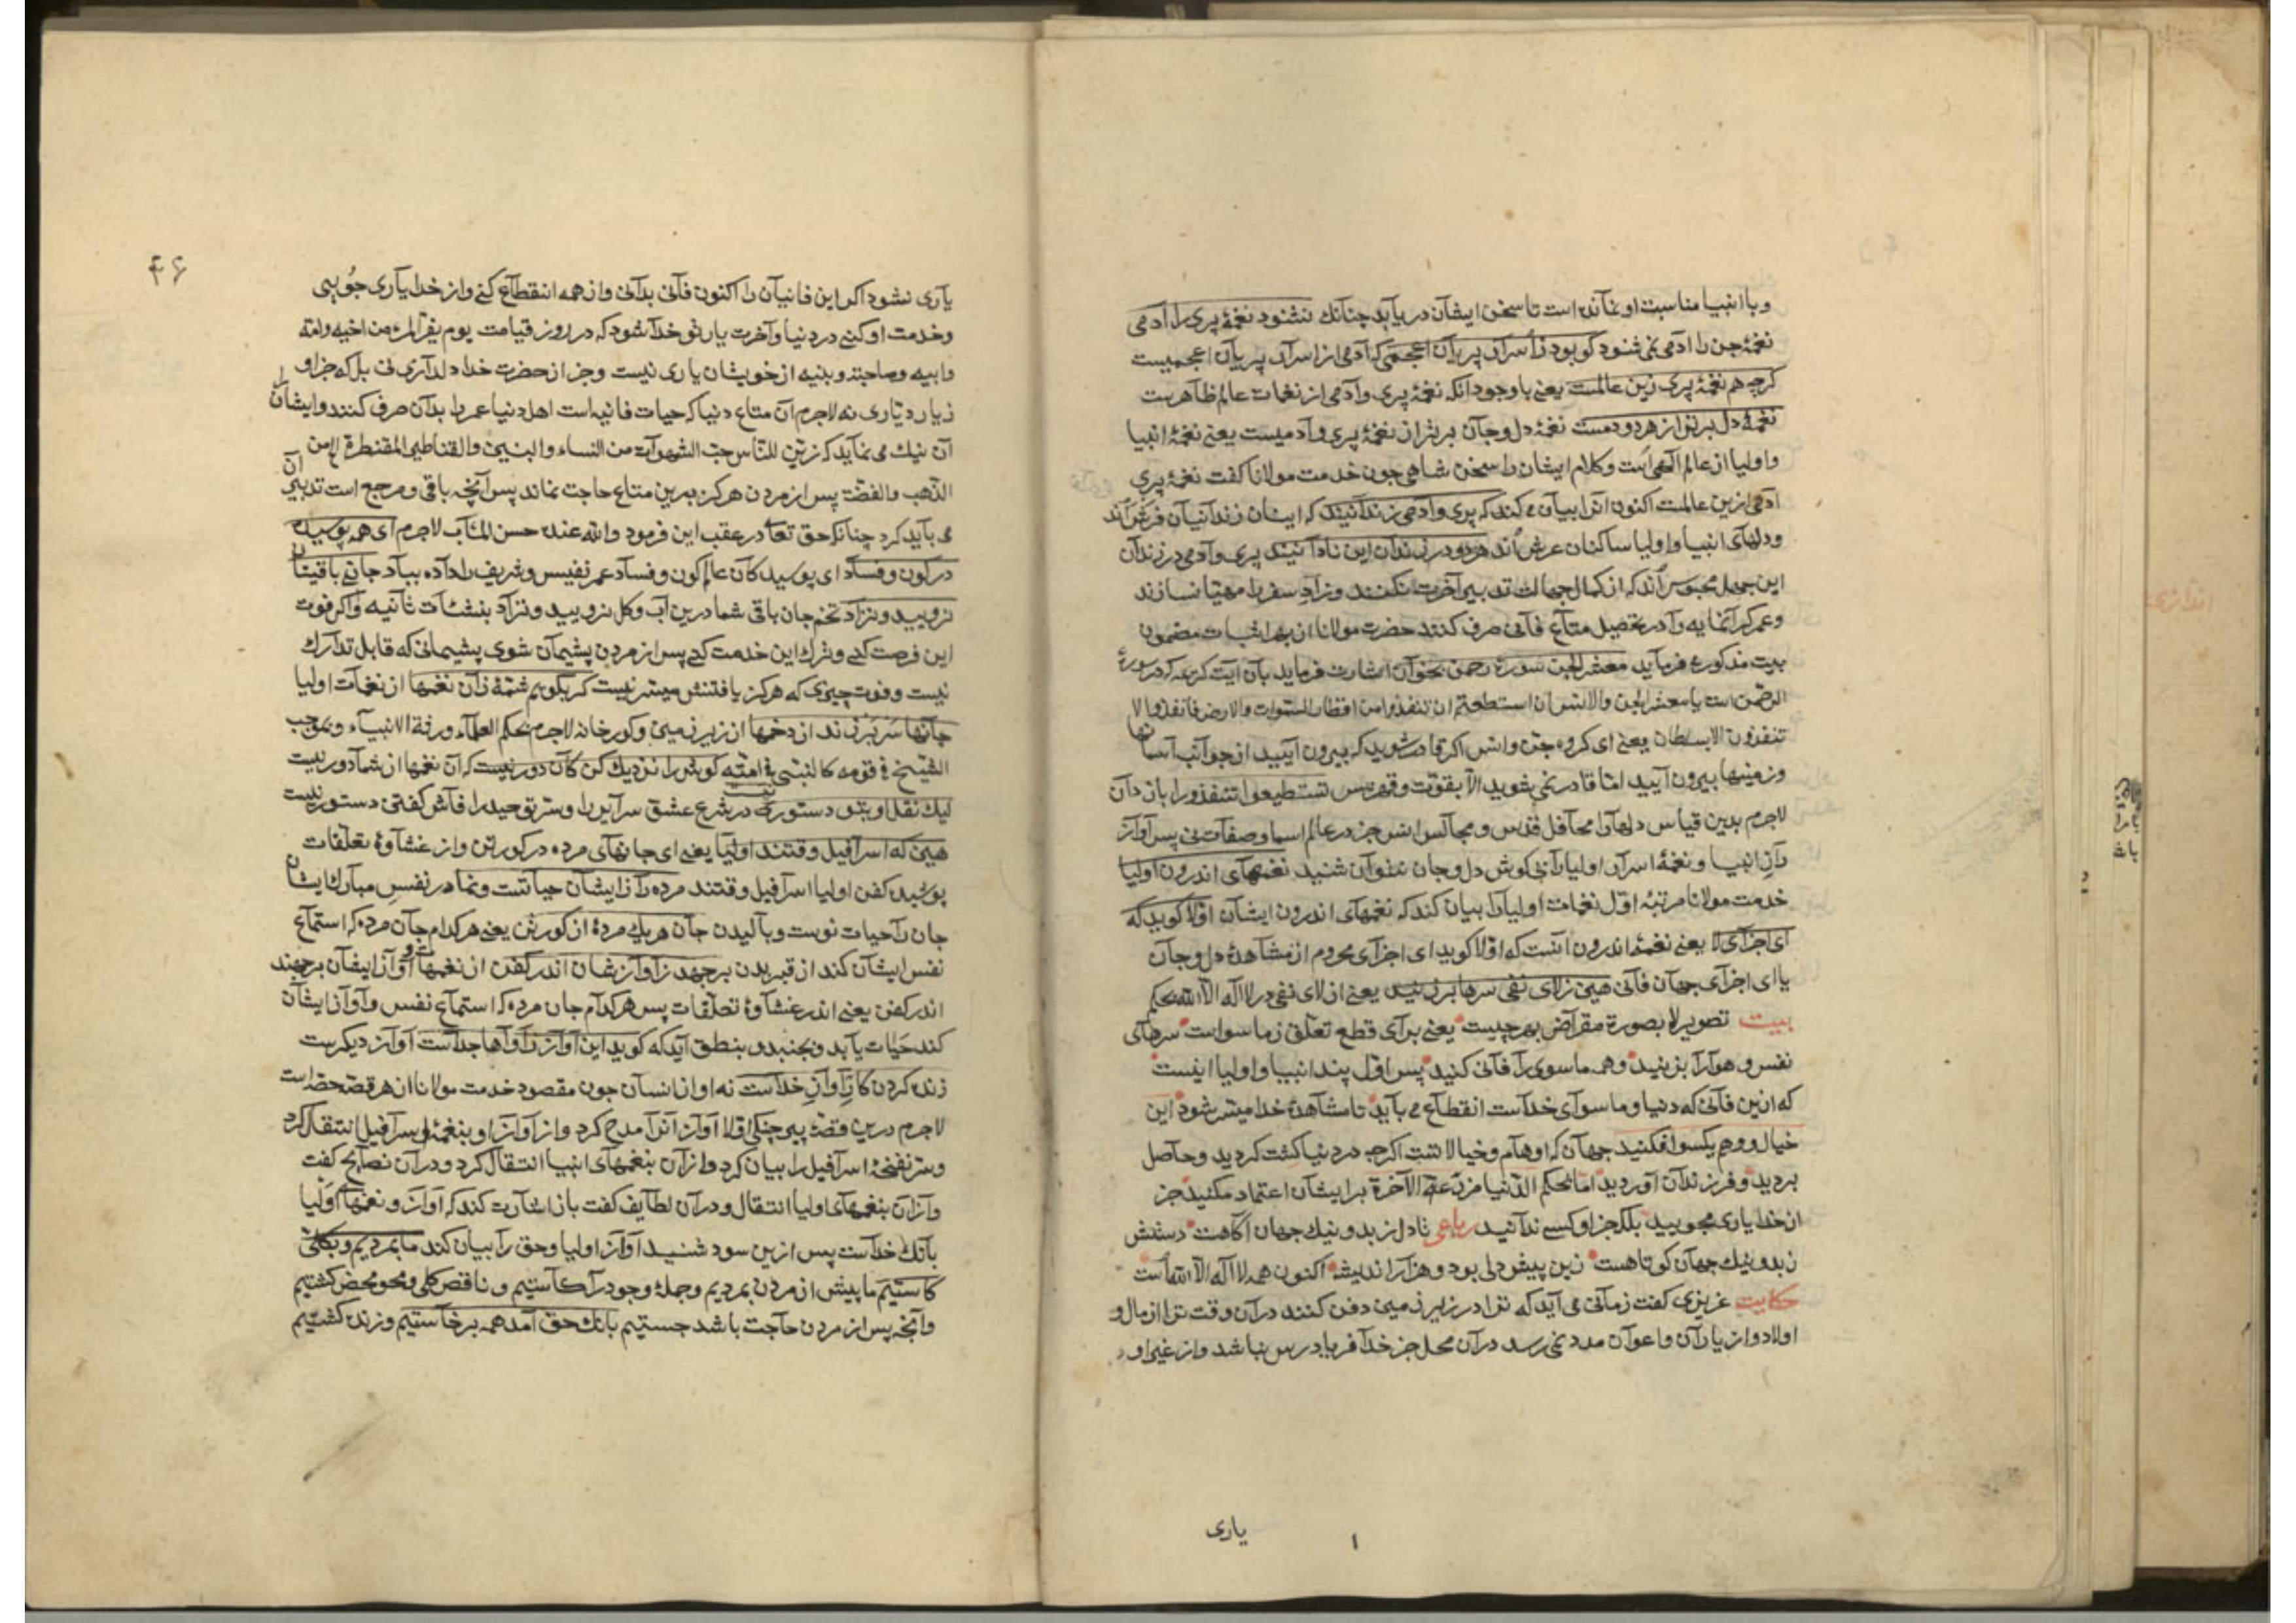 وبا انبیا مناسبت او نمانده است تا سخن ایشان دریابد چنانك نشنود نغمهٔ پری را آدمی
نغمهٔ جن را ادمی نمی شنود کو بود زاسرار پریان اعجمی که آدمی از اسرار پریان اعجمیست
کرچه هم نغمهٔ پری زین عالمست یعنی با وجود انکه نغمهٔ پری وآدمی از نغمات عالم ظاهرست
نغمهٔ دل برتر از هر دو دمست نغمهٔ دل وجان برتر از نغمهٔ پری وآدمیست یعنی نغمهٔ انبیا
واولیا از عالم الهی است وکلام ایشان را سخن شاهی جون خدمت مولانا کفت نغمهٔ پری
آدمی ازین عالمست اکنون انرا بیان می کند که پری وآدمی زندانیند که ایشان زندانیان فرش اند
ودلهای انبیا واولیا ساکنان عرش اند هر دو در زندان این نادانیند پری وآدمی در زندان
این جهل محبوس اند که از کمال جهالت تدبیر آخرت نکنند وزاد سفر را مهیا نسازند
وعمر کرانمایه را در تحصیل متاع فانی صرف کنند حضرت مولانا از بهر اثبات مضمون
بیت مذکور می فرماید معشر الجن سورهٔ رحمن بخوان اشارت فرماید بآن ایت کریمه که در سورهٔ
الرحمن است یا معشر الجن والانس ان استطعتم ان تنفذوا من اقطار السموات والارض فانفذوا لا
تنفذون الا بسلطان یعنی ای کروه جن وانس اکر قادر شوید که بیرون آیید از جوانب آسمانها
وزمینها بیرون آیید اما قادر نمی شوید الا بقوت وقهر پس تستطیعوا تنفذوا را باز دان
لاجرم بدین قیاس دلها را محافل قدس ومجالس انس جز در عالم اسما وصفات نی پس آواز
آن انبیا ونغمهٔ اسرار اولیا را بی کوش دل وجان نتوان شنید نغمهای اندرون اولیا
خدمت مولانا مرتبهٔ اول نغمات اولیا را بیان کند که نغمهای اندرون ایشان اولا کوید که
ای اجزای لا یعنی نغمهٔ اندرون انست که اولا کوید ای اجزای محروم از مشاهدهٔ دل وجان
یا ای اجزای جهان فانی هین زلای نفی سرها برزنید یعنی از لای نفی در لا اله الا الله بحکم
بیت تصویر لا بصورة مقراض بهر چیست یعنی برای قطع تعلق ز ما سواست سرهای
نفس وهوا را بزنید وهمه ما سوی را فانی کنید پس اول پند انبیا واولیا اینست
که ازین فانی که دنیا وما سوای خداست انقطاع می باید تا مشاهدهٔ خدا میسر شود این
خیال ووهم یکسو افکنید جهان که اوهام وخیالاتست اکرچه در دنیا کشت کردید وحاصل
بردید وفرزندان آوردید اما بحکم الدنیا مزرعة الآخرة بر ایشان اعتماد مکنید جز
از خدا یاری مجویید بلکه جز او کسی ندانید رباعی تا دل از بد ونیك جهان اکاهست دستش
ز بد ونیك جهان کوتاهست زین پیش دلی بود وهزار اندیشه اکنون همه لا اله الا الله است
حکایت عزیزی کفت زمانی می آید که ترا در زیر زمین دفن کنند در آن وقت ترا از مال و
اولاد واز یاران واعوان مدد نمی رسد در آن محل جز خدا فریادرس نباشد واز غیر او
یاری
۱
۴۶
یاری نشود اکر این فانیان را اکنون فانی بدانی واز همه انقطاع کنی واز خدا یاری جویی
وخدمت او کنی در دنیا وآخرت یار تو خدا شود که در روز قیامت یوم یفر المرء من اخیه وامه
وابیه وصاحبته وبنیه از خویشان یاری نیست وجز از حضرت خدا دلداری نی بل که جز او
زیار دیاری نه لاجرم آن متاع دنیا که حیات فانیه است اهل دنیا عمر را بدان صرف کنند وایشان را
آن نیك می نماید که زین للناس حب الشهوات من النساء والبنین والقناطیر المقنطرة من
الذهب والفضة پس از مردن هرکز بدین متاع حاجت نماند پس آنچه باقی ومرجع است تدبیر آن
می باید کرد چنانکه حق تعا در عقب این فرمود والله عنده حسن المئاب لاجرم ای همه پوسیده
در کون وفساد ای پوسیدکان عالم کون وفساد عمر نفیس وشریف را داده بباد جان باقیتان
نرویید ونزاد تخم جان باقی شما درین آب وکل نرویید ونزاد بنشئات ثانیه واکر فوت
این فرصت کنی وترك این خدمت کنی پس از مردن پشیمان شوی پشیمانی که قابل تدارك
نیست وفوت چیزی که هرکز یافتنش میسر نیست کر بکویم شمهٔ زان نغمها از نغمات اولیا
جانها سر برزند از دخمها از زیر زمین وکورخانه لاجرم بحکم العلماء ورثة الانبیاء وبموجب
الشیخ فی قومه کالنبی فی امته کوش را نزدیك کن کان دور نیست که آن نغمها از شما دور نیست
لیك نقل او بتو دستور نیست که در شرع عشق سرایر را وسر توحید را فاش کفتن دستور نیست
هین که اسرافیل وقتند اولیا یعنی ای جانهای مرده در کور تن واز غشاوهٔ تعلقات
پوشیده کفن اولیا اسرافیل وقتند مرده را ز ایشان حیاتست ونما در نفس مبارك ایشان
جان را حیات نوست وبالیدن جان هریك مردهٔ از کور تن یعنی هرکدام جان مرده که استماع
نفس ایشان کند از قبر بدن برجهد زاوازشان اندر کفن از نغمهات و آواز ایشان برجهند
اندر کفن یعنی اندر غشاوهٔ تعلقات پس هرکدام جان مرده که استماع نفس وآواز ایشان
کند حیات یابد وبجنبد وبنطق آید که کوید این آواز زاواها جداست آواز دیکرست
زنده کردن کار آواز خداست نه اواز انسان جون مقصود خدمت مولانا از هر قصه حصه است
لاجرم درین قصهٔ پیر چنکی اولا آواز انرا مدح کرد واز آواز او بنغمهٔ اسرافیل انتقال کرد
وسر نفخهٔ اسرافیل را بیان کرد واز آن بنغمهای انبیا انتقال کرد ودر آن نصایح کفت
واز آن بنغمهای اولیا انتقال ودر آن لطایف کفت باز اشارت کند که آواز ونغمهای اولیا
بانك خداست پس ازین سود شنید آواز اولیا وحق را بیان کند ما بمردیم وبکلی
کاستیم ما پیش از مردن بمردیم وجملهٔ وجود را کاستیم وناقص کلی ومحو محض کشتیم
وآنچه پس از مردن حاجت باشد جستیم بانك حق آمد همه برخاستیم وزنده کشتیم